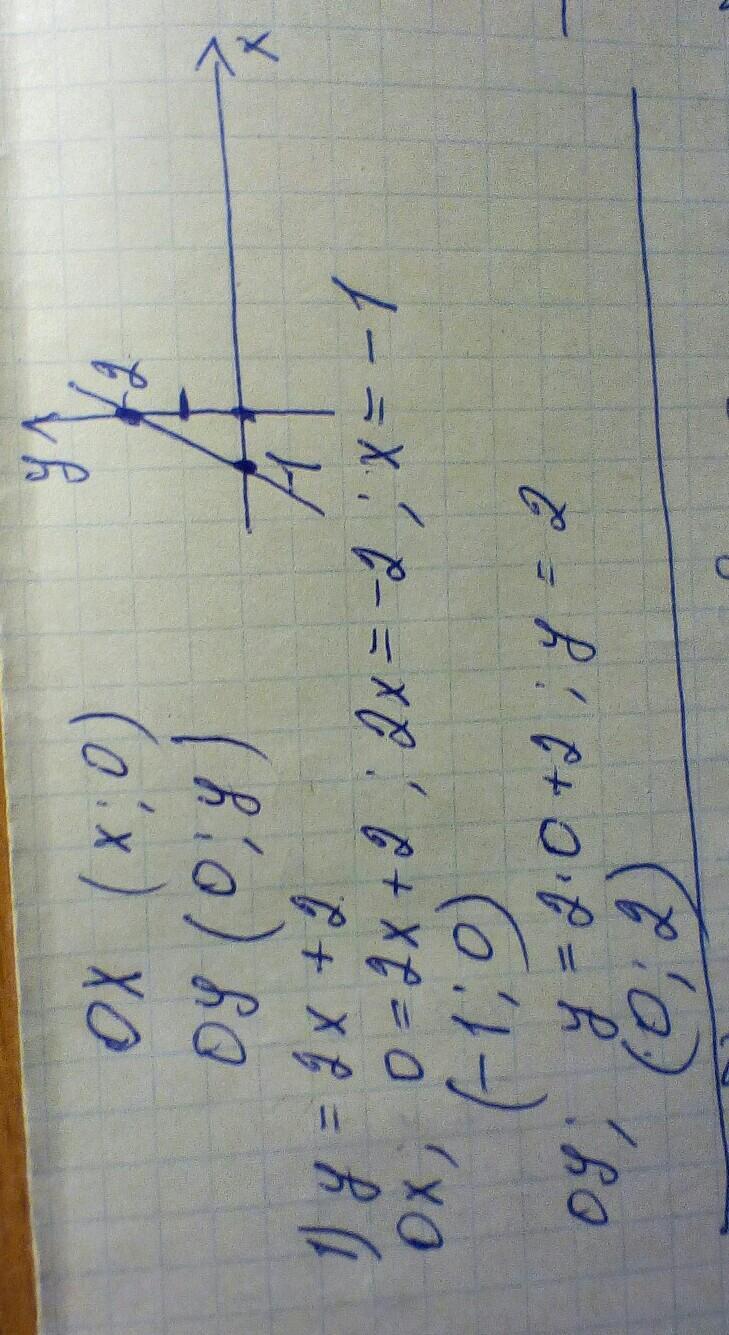 OX (x; 0)
OY (0; y)
y
2
-1
x
1) y = 2x + 2
OX, 0 = 2x + 2; 2x = -2; x = -1
(-1; 0)
OY; y = 2·0 + 2; y = 2
(0; 2)